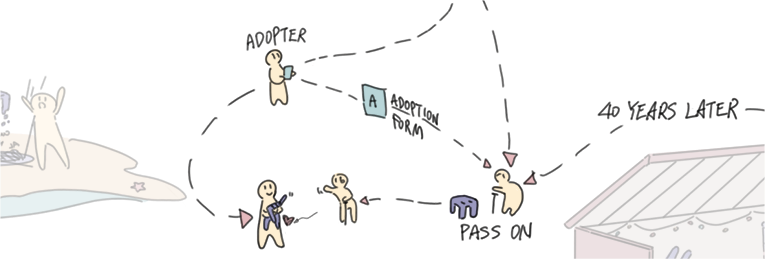 ADOPTER
A
ADOPTION
FORM
40 YEARS LATER
PASS ON